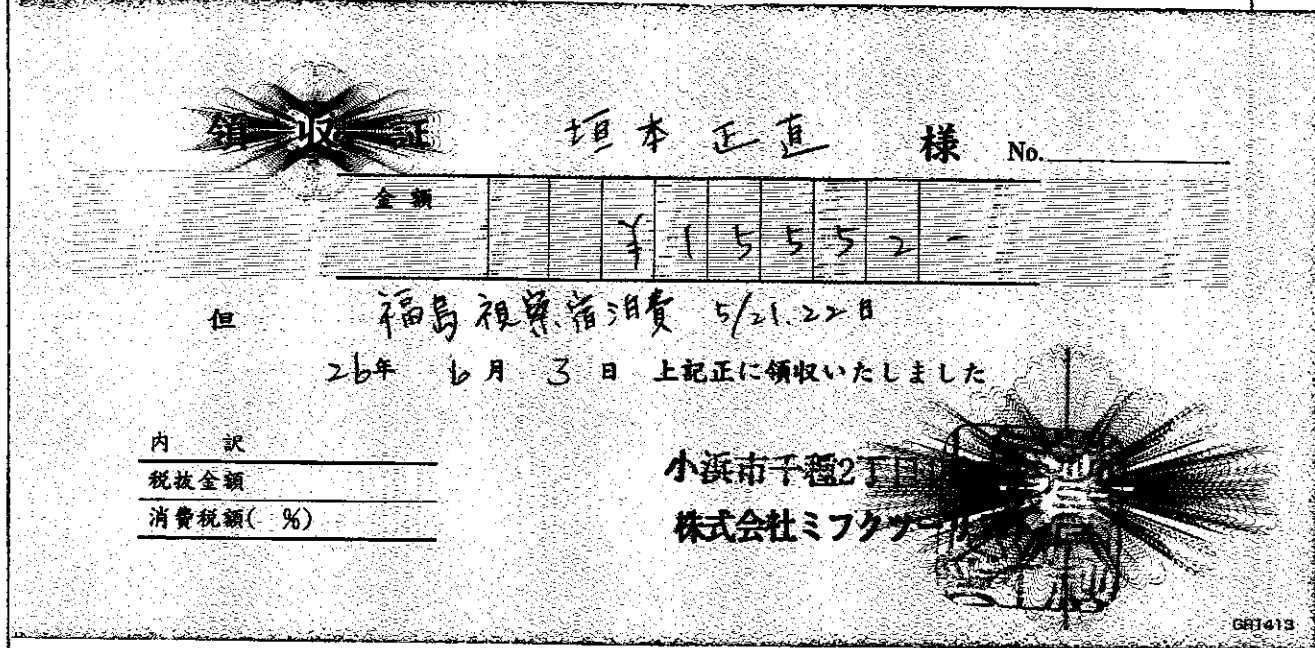 領収証
垣本正直 様 No.
金額 ¥15552-
但 福島視察宿泊費 5/21.22日
26年 6月 3日 上記正に領収いたしました
内訳
税抜金額
消費税額( %)
小浜市千種2丁目
株式会社ミフクツー
GR1413